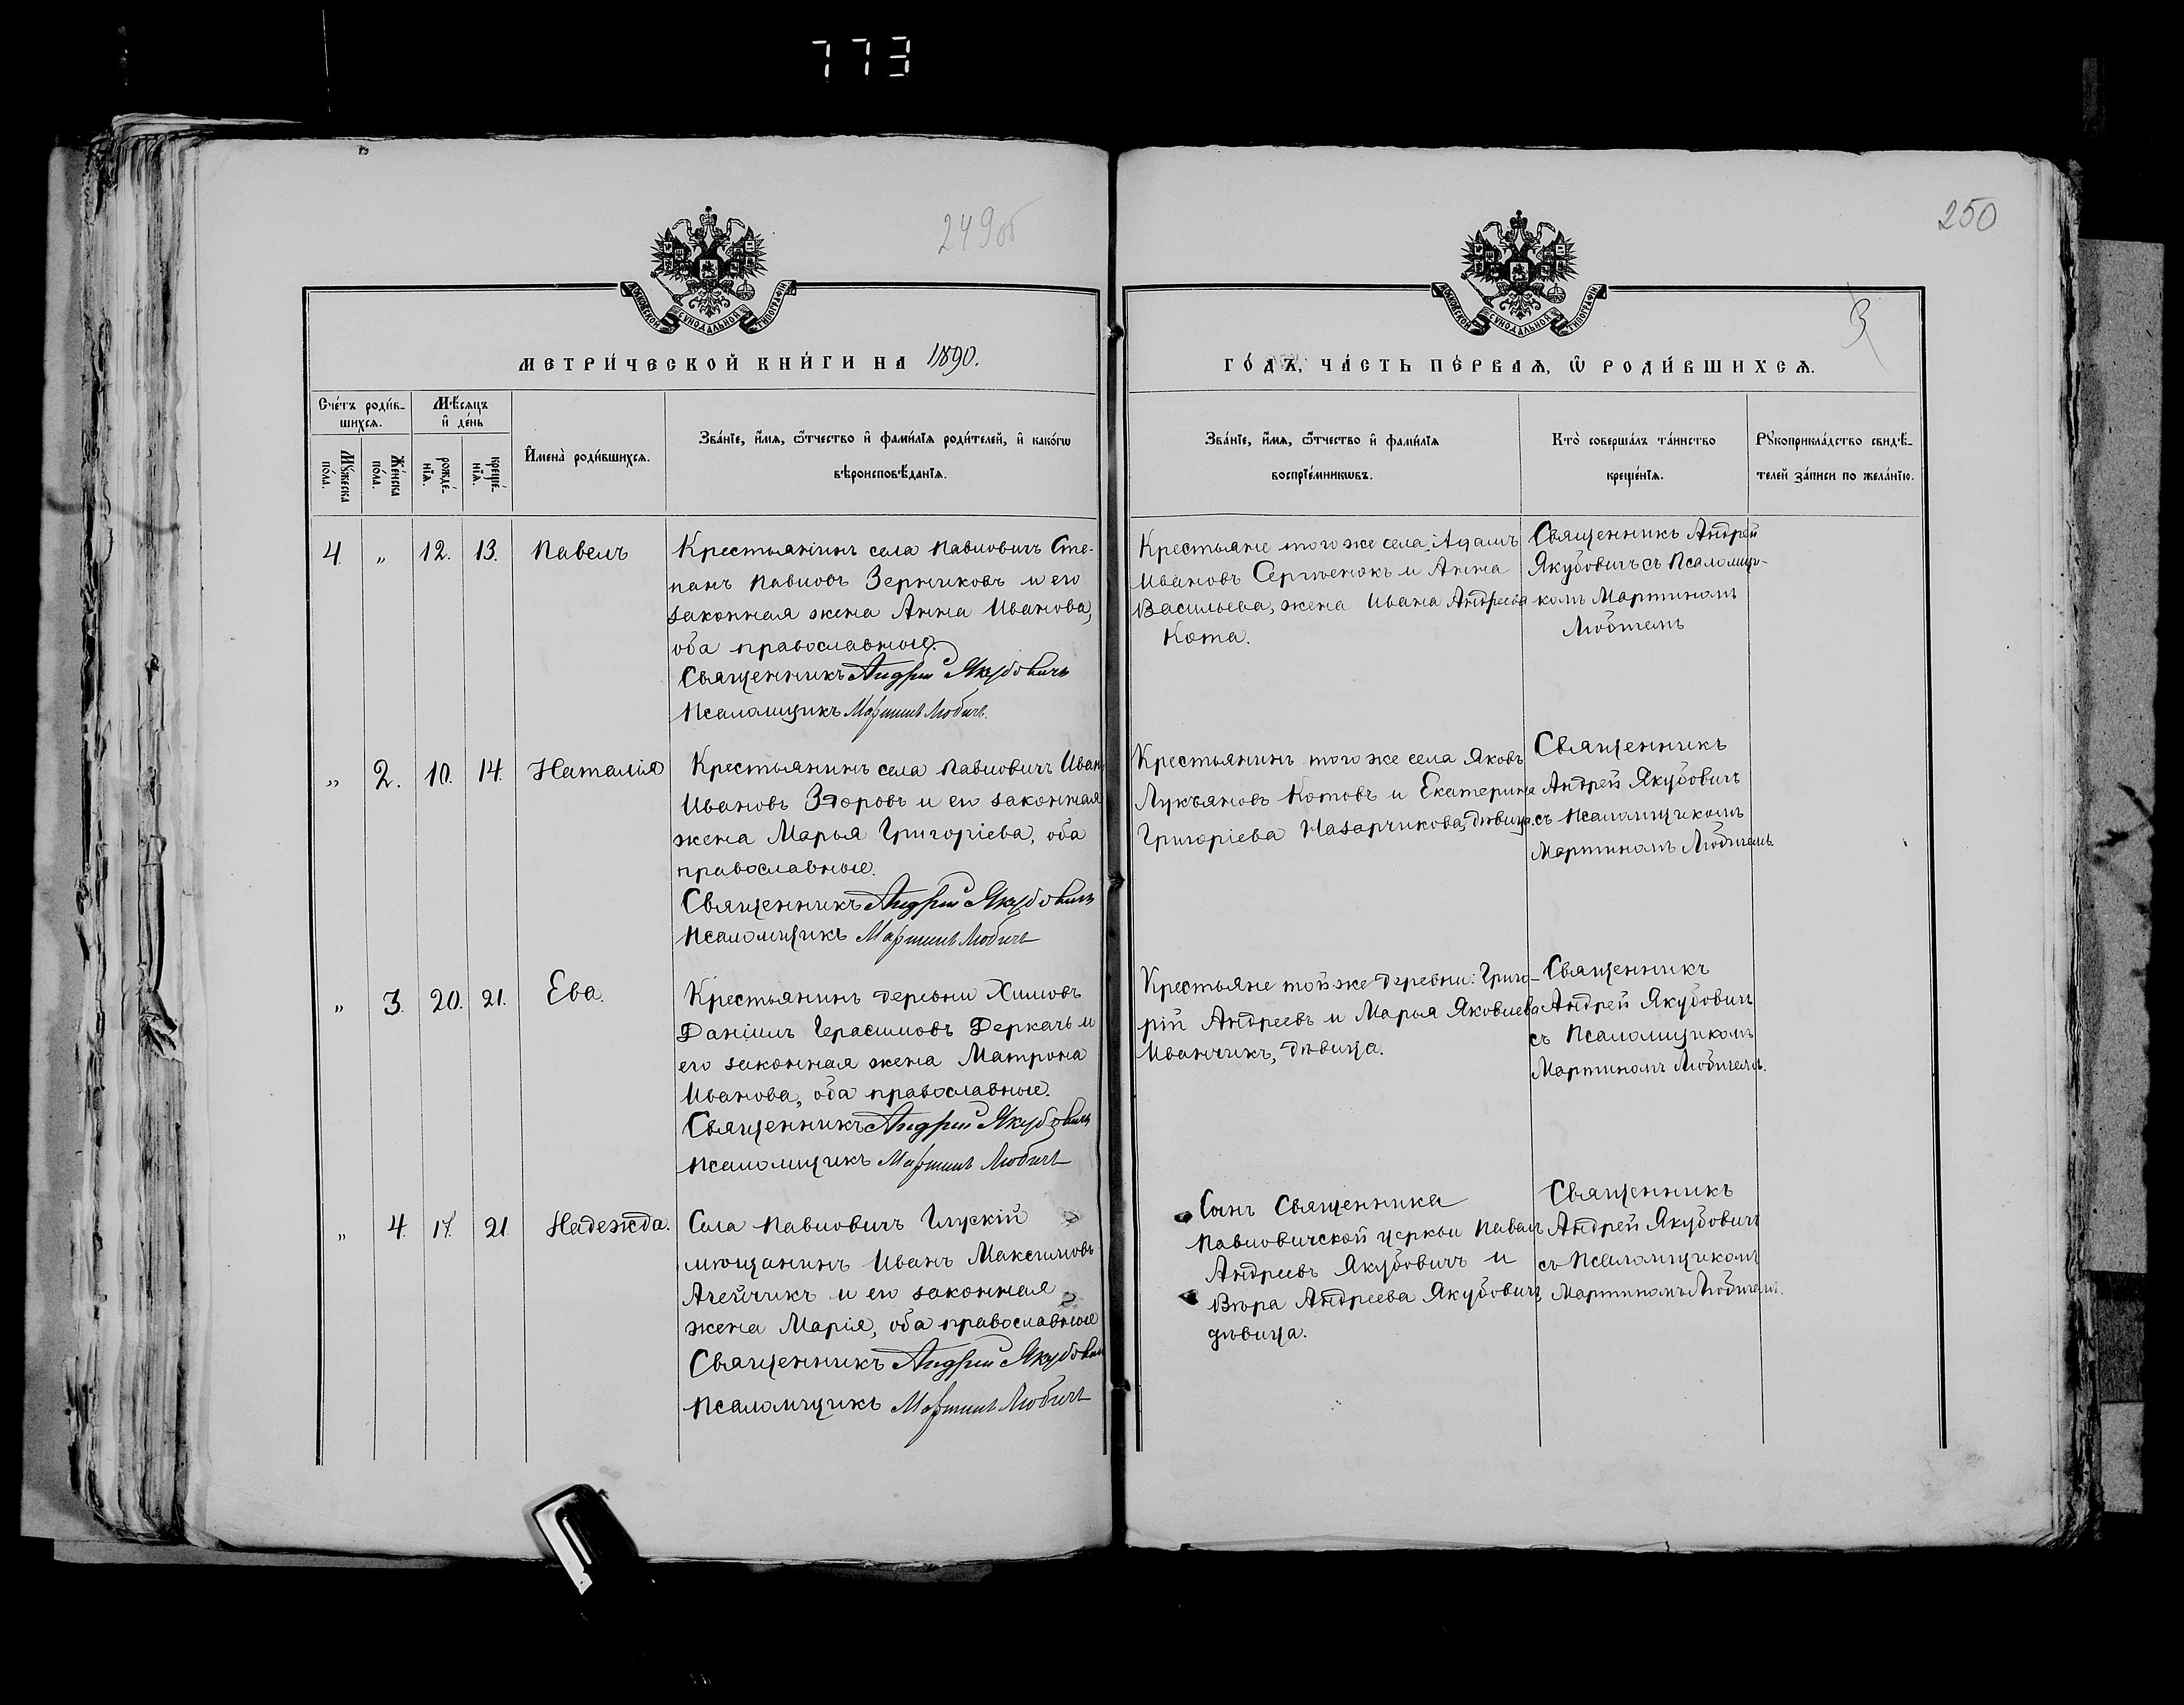 773
249об
250
МОСКОВСКОЙ СѴНОДАЛЬНОЙ ТИПОГРАФІИ
МОСКОВСКОЙ СѴНОДАЛЬНОЙ ТИПОГРАФІИ
МЕТРИ́ЧЕСКОЙ КНИ́ГИ НА 1890.
ГО́ДЪ, ЧА́СТЬ ПЕ́РВАѦ, Ѡ҆ РОДИ́ВШИХСѦ.
Сче́тъ роди́в-
шихсѧ.
Мѣ́сѧцъ
и҆ де́нь
Мꙋ́жеска
по́ла.
Же́нска
по́ла.
рожде́-
нїѧ.
креще́-
нїѧ.
И҆мена̀ роди́вшихсѧ.
Зва́нїе, и҆́мѧ, ѻ҆́тчество и҆ фами́лїѧ роди́телей, и҆ како́гѡ
вѣроисповѣ́данїѧ.
Зва́нїе, и҆́мѧ, ѻ҆́тчество и҆ фами́лїѧ
воспрїе́мникѡвъ.
Кто̀ соверша́лъ та́инство
креще́нїѧ.
Рꙋкоприкла́дство свидѣ́-
телей за́писи по жела́нїю.
4. „ 12. 13. Павелъ
Крестьянинъ села Павловичъ Сте-
панъ Павловъ Зерниковъ и его
законная жена Анна Иванова,
оба православные.
Священникъ Андрей Якубовичъ
Псаломщикъ Мартинъ Любичъ.
Крестьяне того же села: Адамъ
Ивановъ Сергіенокъ и Анна
Васильева, жена Ивана Андреева
Кота.
Священникъ Андрей
Якубовичъ съ Псаломщи-
комъ Мартиномъ
Любичемъ
„ 2. 10. 14. Наталія
Крестьянинъ села Павловичъ Иванъ
Ивановъ Здоровъ и его законная
жена Марья Григоріева, оба
православные.
Священникъ Андрей Якубовичъ
Псаломщикъ Мартинъ Любичъ
Крестьянинъ того же села Яковъ
Лукьяновъ Котовъ и Екатерина
Григоріева Назарчикова, дѣвица.
Священникъ
Андрей Якубовичъ
съ Псаломщикомъ
Мартиномъ Любичемъ.
„ 3. 20. 21. Ева.
Крестьянинъ деревни Химовъ
Даніилъ Герасимовъ Деркачъ и
его законная жена Матрона
Иванова, оба православные.
Священникъ Андрей Якубовичъ
Псаломщикъ Мартинъ Любичъ
Крестьяне той же деревни: Григо-
рій Андреевъ и Марья Яковлева
Иванчикъ, дѣвица.
Священникъ
Андрей Якубовичъ
съ Псаломщикомъ
Мартиномъ Любичемъ.
„ 4. 17. 21. Надежда.
Села Павловичъ Глускій
мѣщанинъ Иванъ Максимовъ
Агейчикъ и его законная
жена Марія, оба православные
Священникъ Андрей Якубовичъ
Псаломщикъ Мартинъ Любичъ
Сынъ Священника
Павловичской церкви Павелъ
Андреевъ Якубовичъ и
Вѣра Андреева Якубовичъ
дѣвица.
Священникъ
Андрей Якубовичъ
съ Псаломщикомъ
Мартиномъ Любичемъ.